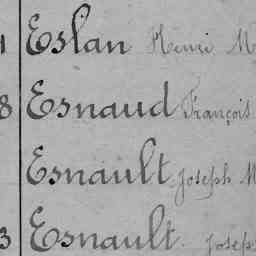 1 Eslan Henri M
8 Esnaud François
Esnault Joseph M
3 Esnault. Josep